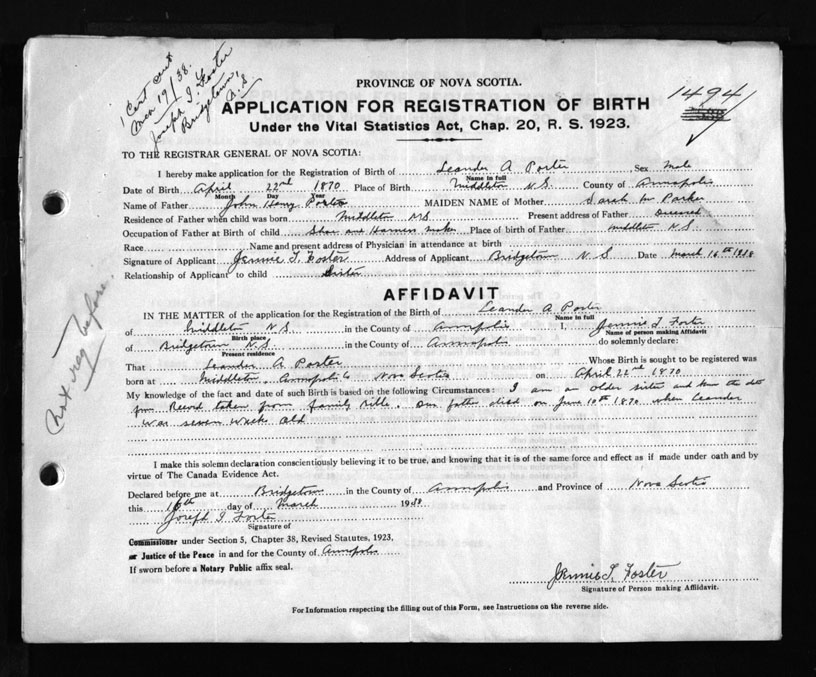 1 Cert out
Mch 19/38.
Joseph I. Foster
Bridgetown,
N.S.
1494
PROVINCE OF NOVA SCOTIA.
APPLICATION FOR REGISTRATION OF BIRTH
Under the Vital Statistics Act, Chap. 20, R. S. 1923.
TO THE REGISTRAR GENERAL OF NOVA SCOTIA:
I hereby make application for the Registration of Birth of Leander A Porter Sex Male
Name in full
Date of Birth April 22nd 1870 Place of Birth Middleton N.S. County of Annapolis
Month Day Year
Name of Father John Henry Porter MAIDEN NAME of Mother Sarah M Parker
Residence of Father when child was born Middleton NS Present address of Father Deceased
Occupation of Father at Birth of child Shoe and Harness maker Place of birth of Father Middleton N.S
Race Name and present address of Physician in attendance at birth
Signature of Applicant Jennie T. Foster Address of Applicant Bridgetown N S Date March 16th 1938
Relationship of Applicant to child Sister
AFFIDAVIT
IN THE MATTER of the application for the Registration of the Birth of Leander A Porter
Name in full
of Middleton N.S. in the County of Annapolis I, Jennie T Foster
Birth place Name of person making Affidavit
of Bridgetown N.S in the County of Annapolis do solemnly declare:
Present residence
That Leander A. Porter Whose Birth is sought to be registered was
born at Middleton, Annapolis Co Nova Scotia on April 22nd 1870
My knowledge of the fact and date of such Birth is based on the following Circumstances: I am an older sister and know the date
from Record taken from family Bible. Our father died on June 10th 1870 when Leander
was seven weeks old
I make this solemn declaration conscientiously believing it to be true, and knowing that it is of the same force and effect as if made under oath and by
virtue of The Canada Evidence Act.
Declared before me at Bridgetown in the County of Annapolis and Province of Nova Scotia
this 16th day of March 1938
Joseph I Foster
Signature of
Commissioner under Section 5, Chapter 38, Revised Statutes, 1923,
or Justice of the Peace in and for the County of Annapolis
If sworn before a Notary Public affix seal.
Jennie T. Foster
Signature of Person making Affidavit.
For Information respecting the filling out of this Form, see Instructions on the reverse side.
Not reg before